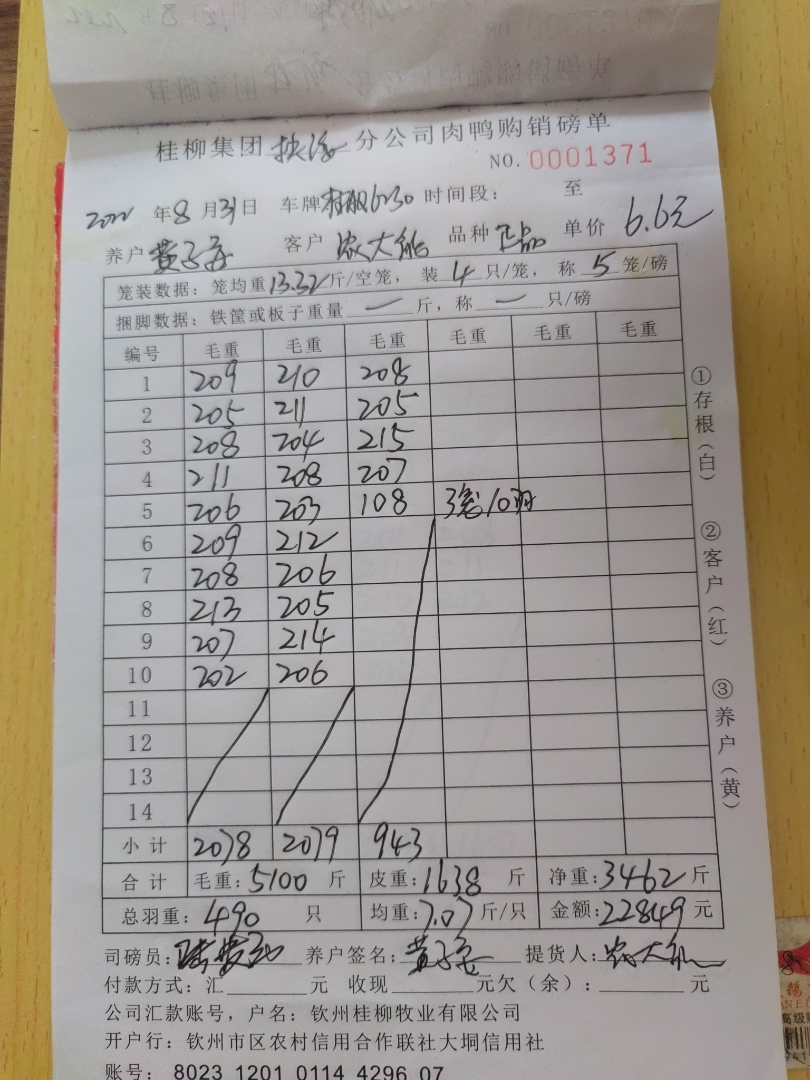 桂柳集团 分公司肉鸭购销磅单
NO. 0001371
2022年8月31日 车牌 6230 时间段： 至
养户 客户 农大 品种 正品 单价 6.6元
笼装数据：笼均重13.32斤/空笼，装4只/笼，称5笼/磅
捆脚数据：铁筐或板子重量一斤，称一只/磅
编号 毛重 毛重 毛重 毛重 毛重 毛重
1 209 210 208
2 205 211 205
3 208 204 215
4 211 208 207
5 206 203 108 3笼10羽
6 209 212
7 208 206
8 213 205
9 207 214
10 202 206
11
12
13
14
小计 2078 2079 943
合计 毛重：5100斤 皮重：1638斤 净重：3462斤
总羽重：490只 均重：7.07斤/只 金额：22849元
司磅员： 养户签名： 提货人：农大
付款方式：汇 元 收现 元欠（余）： 元
公司汇款账号，户名：钦州桂柳牧业有限公司
开户行：钦州市区农村信用合作联社大垌信用社
账号： 8023 1201 0114 4296 07
①存根（白）
②客户（红）
③养户（黄）